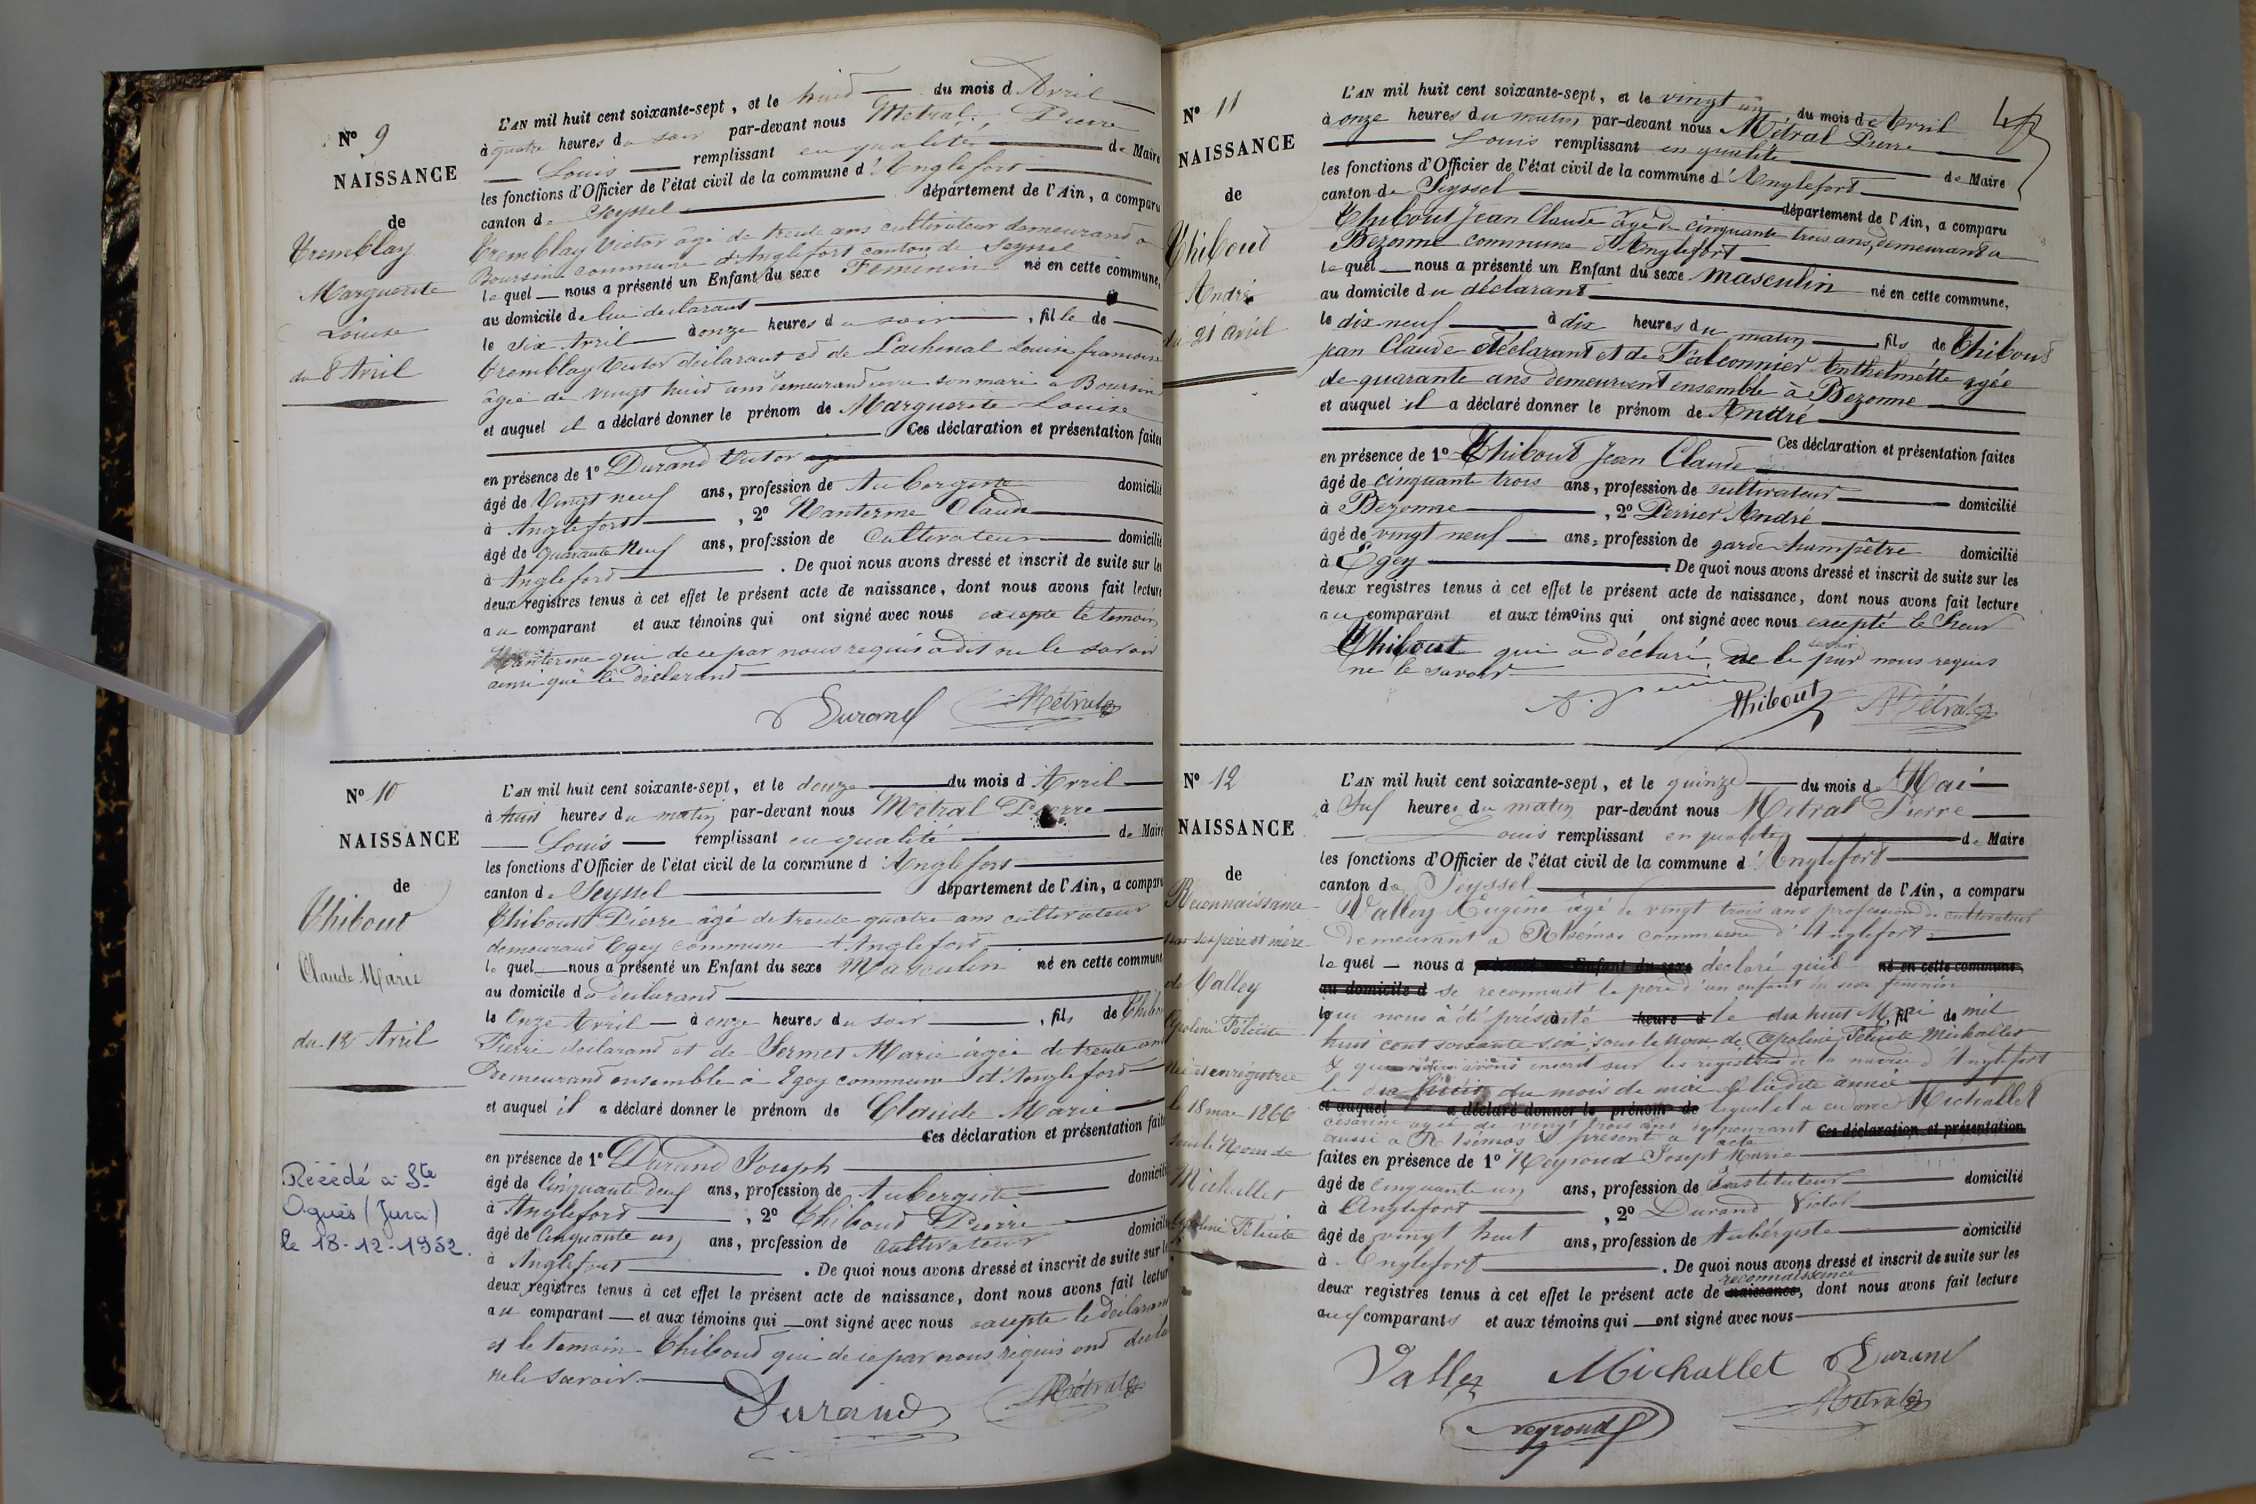 N° 9
NAISSANCE
de
Tremblay
Marguerite
Louise
du 8 Avril
L'AN mil huit cent soixante-sept, et le huit du mois d'Avril
à quatre heures du soir par-devant nous Métral Pierre
Louis remplissant en qualité de Maire
les fonctions d'Officier de l'état civil de la commune d'Anglefort
canton de Seyssel département de l'Ain, a comparu
Tremblay Victor âgé de trente ans cultivateur demeurand a
Boursin commune d'Anglefort canton de Seyssel
lequel nous a présenté un Enfant du sexe Féminin né en cette commune,
au domicile de lui declarant
le six Avril à onze heures du soir, fille de
Tremblay Victor déclarant et de Lachenal Louise francoise
âgée de vingt huit ans demeurand avec son mari a Boursin
et auquel il a déclaré donner le prénom de Marguerite Louise
Ces déclaration et présentation faites
en présence de 1° Durand Victor
âgé de Vingt neuf ans, profession de Aubergiste domicilié
à Anglefort, 2° Nanterme Claude
âgé de quarante Neuf ans, profession de Cultivateur domicilié
à Angleford. De quoi nous avons dressé et inscrit de suite sur les
deux registres tenus à cet effet le présent acte de naissance, dont nous avons fait lecture
au comparant et aux témoins qui ont signé avec nous excepté le temoin
Nanterme qui de ce par nous requis a dit ne le savoir
ainsi que le déclarand
Durand Métral
N° 10
NAISSANCE
de
Thiboud
Claude Marie
du 12 Avril
Décédé à Ste
Agnès (Jura)
le 18-12-1952.
L'AN mil huit cent soixante-sept, et le douze du mois d'Avril
à huit heures du matin par-devant nous Métral Pierre
Louis remplissant en qualité de Maire
les fonctions d'Officier de l'état civil de la commune d'Anglefort
canton de Seyssel département de l'Ain, a comparu
Thiboud Pierre âgé de trente quatre ans cultivateur
demeurand Egey commune d'Angleford
lequel nous a présenté un Enfant du sexe Masculin né en cette commune
au domicile du déclarand
le Onze Avril à onze heures du soir, fils de Thibou
Pierre declarand et de Sermet Marie âgée de trente ans
Demeurand ensemble à Egey commune d'Angleford
et auquel il a déclaré donner le prénom de Claude Marie
Ces déclaration et présentation faites
en présence de 1° Durand Joseph
âgé de Cinquante deux ans, profession de Aubergiste domicilié
à Angleford, 2° Thiboud Pierre
âgé de Cinquante un ans, profession de cultivateur domicilié
à Anglefort. De quoi nous avons dressé et inscrit de suite sur les
deux registres tenus à cet effet le présent acte de naissance, dont nous avons fait lecture
au comparant et aux témoins qui ont signé avec nous excepté le déclarand
et le temoin Thiboud qui de ce par nous requis ond declaré
ne le savoir.
Durand Métral
N° 11
NAISSANCE
de
Thiboud
André
du 21 avril
L'AN mil huit cent soixante-sept, et le vingt un du mois de Avril
à onze heures du matin par-devant nous Métral Pierre
Louis remplissant en qualité de Maire
les fonctions d'Officier de l'état civil de la commune d'Anglefort
canton de Seyssel département de l'Ain, a comparu
Thibout Jean Claude âgé de cinquante trois ans, demeurant a
Bezonne commune d'Anglefort
lequel nous a présenté un Enfant du sexe masculin né en cette commune,
au domicile du déclarant
le dix neuf à dix heures du matin, fils de Thiboud
jean Claude déclarant et de Falconnier Anthelmette agée
de quarante ans demeurent ensemble à Bezonne
et auquel il a déclaré donner le prénom de André
Ces déclaration et présentation faites
en présence de 1° Thibout Jean Claude
âgé de cinquante trois ans, profession de cultivateur domicilié
à Bezonne, 2° Perrier André
âgé de vingt neuf ans, profession de garde champêtre domicilié
à Egey. De quoi nous avons dressé et inscrit de suite sur les
deux registres tenus à cet effet le présent acte de naissance, dont nous avons fait lecture
au comparant et aux témoins qui ont signé avec nous excepté le Sieur
Thibout qui a déclaré de le par nous requis
ne le savoir
Thibout Métral
N° 12
NAISSANCE
de
Reconnaissance
par ses père et mère
de Valley
Apoline Félicité
née et enregistrée
le 18 mai 1866
sous le Nom de
Michallet
Apoline Félicité
L'AN mil huit cent soixante-sept, et le quinze du mois de Mai
à Six heures du matin par-devant nous Métral Pierre
Louis remplissant en qualité de Maire
les fonctions d'Officier de l'état civil de la commune d'Anglefort
canton de Seyssel département de l'Ain, a comparu
Valley Eugène âgé de vingt trois ans profession de cultivateur
demeurant a Rhemoz commune d'Anglefort
lequel nous a présenté un Enfant du sexe déclaré qu'il né en cette commune,
au domicile d se reconnait le père d'un enfant du sexe féminin
qui nous à été présenté heure d le dix huit Mai fil de mil
huit cent soixante six sous le nom de Apoline Félicité Michallet
& que nous avons inscrit sur les registres de la mairie d'Anglefort
le dix huit du mois de mai de la dite année
et auquel a déclaré donner le prénom de lequel il a eu avec Michallet
césarine agée de vingt trois ans demeurant Ces déclaration et présentation
aussi a présent a acte
faites en présence de 1° Neyroud Joseph Marie
âgé de cinquante un ans, profession de Instituteur domicilié
à Anglefort, 2° Durand Victor
âgé de vingt huit ans, profession de Aubergiste domicilié
à Anglefort. De quoi nous avons dressé et inscrit de suite sur les
reconnaissance
deux registres tenus à cet effet le présent acte de naissance, dont nous avons fait lecture
aux comparants et aux témoins qui ont signé avec nous
Valley Michallet Durand
Neyroud Métral